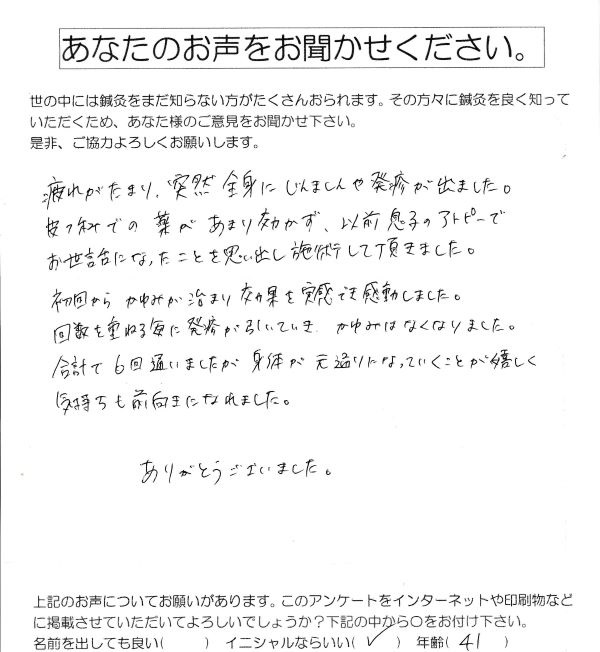 あなたのお声をお聞かせください。
世の中には鍼灸をまだ知らない方がたくさんおられます。その方々に鍼灸を良く知って
いただくため、あなた様のご意見をお聞かせ下さい。
是非、ご協力よろしくお願いします。
疲れがたまり、突然全身にじんましんや発疹が出ました。
皮フ科での薬があまり効かず、以前息子のアトピーで
お世話になったことを思い出し施術して頂きました。
初回からかゆみが治まり効果を実感でき感動しました。
回数を重ねる毎に発疹が引いていき かゆみはなくなりました。
合計で6回通いましたが身体が元通りになっていくことが嬉しく
気持ちも前向きになれました。
ありがとうございました。
上記のお声についてお願いがあります。このアンケートをインターネットや印刷物など
に掲載させていただいてよろしいでしょうか?下記の中から〇をお付け下さい。
名前を出しても良い( ) イニシャルならいい( ✓ ) 年齢( 41 )